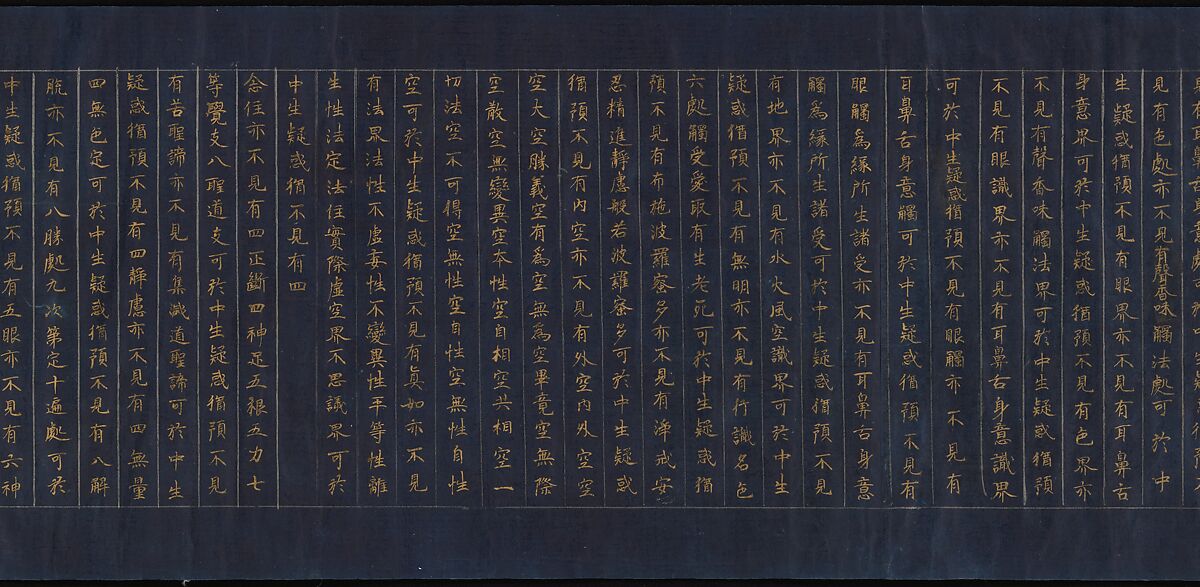 見有色處亦不見有聲香味觸法處可於中
生疑惑猶預不見有眼界亦不見有耳鼻舌
身意界可於中生疑惑猶預不見有色界亦
不見有聲香味觸法界可於中生疑惑猶預
不見有眼識界亦不見有耳鼻舌身意識界
可於中生疑惑猶預不見有眼觸亦不見有
耳鼻舌身意觸可於中生疑惑猶預不見有
眼觸為緣所生諸受亦不見有耳鼻舌身意
觸為緣所生諸受可於中生疑惑猶預不見
有地界亦不見有水火風空識界可於中生
疑惑猶預不見有無明亦不見有行識名色
六處觸受愛取有生老死可於中生疑惑猶
預不見有布施波羅蜜多亦不見有淨戒安
忍精進靜慮般若波羅蜜多可於中生疑惑
猶預不見有內空亦不見有外空內外空空
空大空勝義空有為空無為空畢竟空無際
空散空無變異空本性空自相空共相空一
切法空不可得空無性空自性空無性自性
空可於中生疑惑猶預不見有真如亦不見
有法界法性不虛妄性不變異性平等性離
生性法定法住實際虛空界不思議界可於
中生疑惑猶不見有四
念住亦不見有四正斷四神足五根五力七
等覺支八聖道支可於中生疑惑猶預不見
有苦聖諦亦不見有集滅道聖諦可於中生
疑惑猶預不見有四靜慮亦不見有四無量
四無色定可於中生疑惑猶預不見有八解
脫亦不見有八勝處九次第定十遍處可於
中生疑惑猶預不見有五眼亦不見有六神